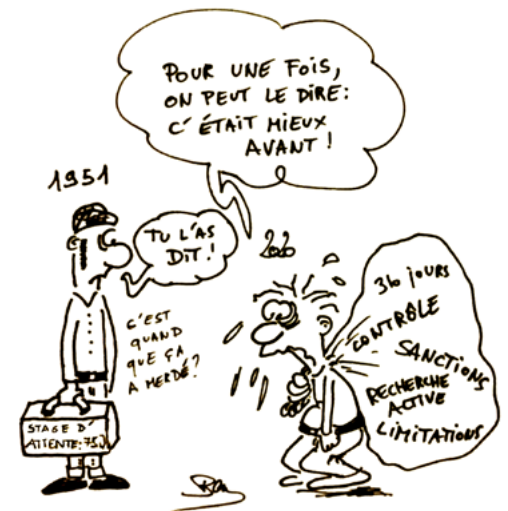 POUR UNE FOIS,
ON PEUT LE DIRE:
C'ÉTAIT MIEUX
AVANT!
1951
TU L'AS
DIT!
2020
C'EST
QUAND
QUE ÇA
A MERDÉ?
STAGE D'
ATTENTE: 75J
36 JOURS
CONTRÔLE
SANCTIONS
RECHERCHE
ACTIVE
LIMITATIONS